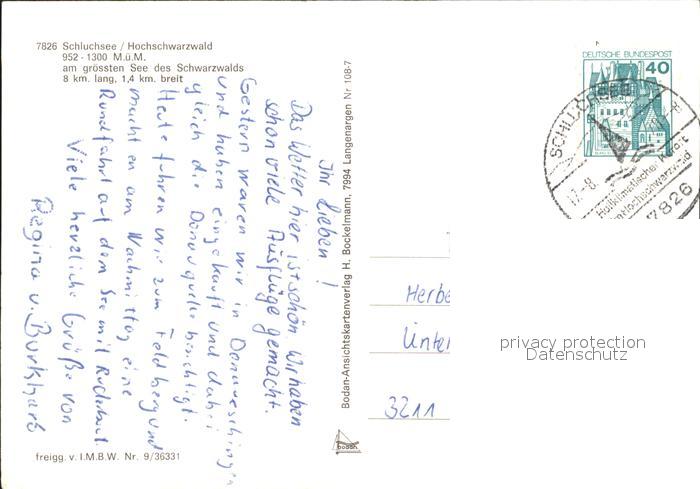 7826 Schluchsee / Hochschwarzwald
952 - 1300 M.ü.M.
am grössten See des Schwarzwalds
8 km. lang, 1,4 km. breit
Ihr Lieben!
Das Wetter hier ist schön. Wir haben
schon viele Ausflüge gemacht.
Gestern waren wir in Donaueschingen
und haben eingekauft und dabei
gleich die Donauquelle besichtigt.
Heute fuhren wir zum Feldberg und
machten am Nachmittag eine
Rundfahrt auf dem See mit Ruderboot.
Viele herzliche Grüße von
Regina u. Burkhard
freigg. v. I.M.B.W. Nr. 9/36331
Bodan-Ansichtskartenverlag H. Bockelmann, 7994 Langenargen Nr 108-7
bodan
DEUTSCHE BUNDESPOST
40
SCHLUCHSEE
17.-8.
Heilklimatischer Kurort
im Hochschwarzwald
7826
Herbe
Unter
3211
privacy protection
Datenschutz